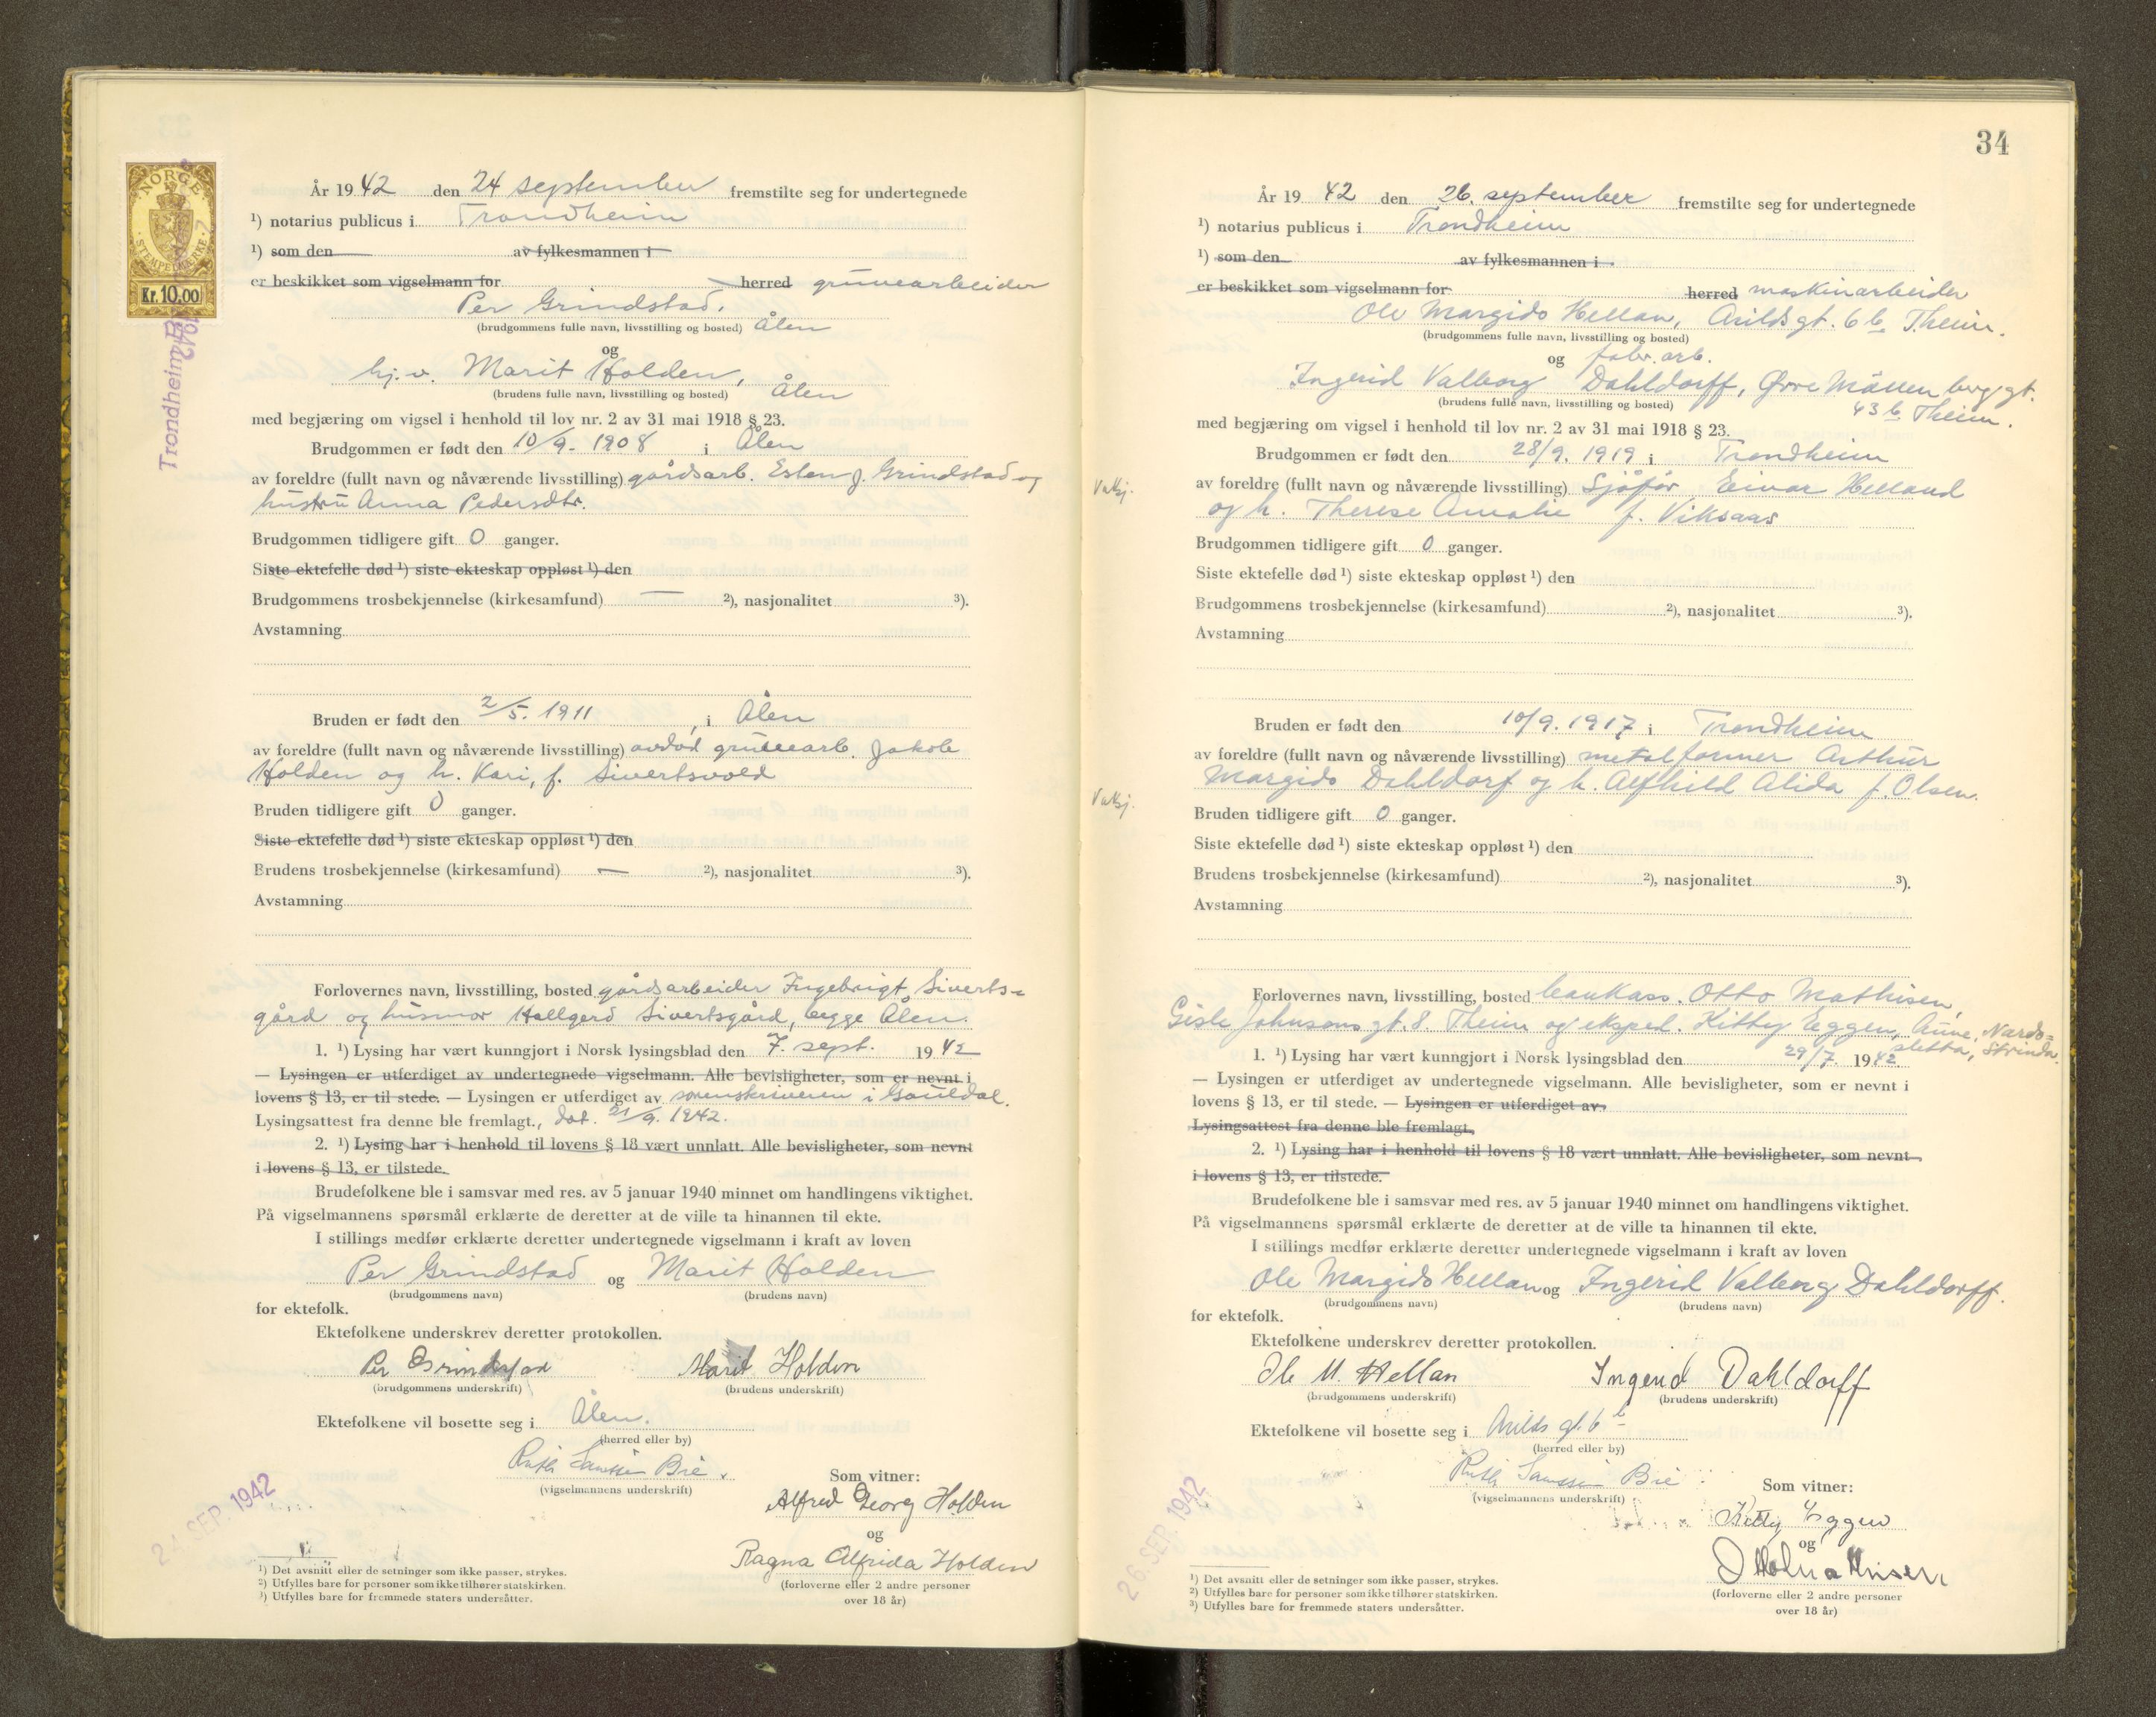 NORGE
STEMPELMERKE
Kr. 10,00
År 1942 den 24 september fremstilte seg for undertegnede
1) notarius publicus i Trondheim
1) som den av fylkesmannen i
er beskikket som vigselmann for herred gruvearbeider
Per Grindstad.
(brudgommens fulle navn, livsstilling og bosted) Ålen
og
hj.v. Marit Holden,
(brudens fulle navn, livsstilling og bosted) Ålen
med begjæring om vigsel i henhold til lov nr. 2 av 31 mai 1918 § 23.
Brudgommen er født den 10/9. 1908 i Ålen
av foreldre (fullt navn og nåværende livsstilling) gårdsarb. Esten J. Grindstad og
hustru Anna Pedersdtr.
Brudgommen tidligere gift 0 ganger.
Siste ektefelle død 1) siste ekteskap oppløst 1) den
Brudgommens trosbekjennelse (kirkesamfund) — 2), nasjonalitet 3).
Avstamning
Bruden er født den 2/5. 1911, i Ålen
av foreldre (fullt navn og nåværende livsstilling) avdød gruvearb. Jakob
Holden og h. Kari, f. Sivertsvold
Bruden tidligere gift 0 ganger.
Siste ektefelle død 1) siste ekteskap oppløst 1) den
Brudens trosbekjennelse (kirkesamfund) — 2), nasjonalitet 3).
Avstamning
Forlovernes navn, livsstilling, bosted gårdsarbeider Ingebrigt Siverts-
gård og husmor Hallgerd Sivertsgård, begge Ålen.
1. 1) Lysing har vært kunngjort i Norsk lysingsblad den 7. sept. 1942
— Lysingen er utferdiget av undertegnede vigselmann. Alle bevisligheter, som er nevnt i
lovens § 13, er til stede. — Lysingen er utferdiget av sorenskriveren i Gauldal.
Lysingsattest fra denne ble fremlagt., dat. 21/9. 1942.
2. 1) Lysing har i henhold til lovens § 18 vært unnlatt. Alle bevisligheter, som nevnt
i lovens § 13, er tilstede.
Brudefolkene ble i samsvar med res. av 5 januar 1940 minnet om handlingens viktighet.
På vigselmannens spørsmål erklærte de deretter at de ville ta hinannen til ekte.
I stillings medfør erklærte deretter undertegnede vigselmann i kraft av loven
Per Grindstad og Marit Holden
(brudgommens navn) (brudens navn)
for ektefolk.
Ektefolkene underskrev deretter protokollen.
Per Grindstad Marit Holden
(brudgommens underskrift) (brudens underskrift)
Ektefolkene vil bosette seg i Ålen.
(herred eller by)
Ruth Bie.
(vigselmannens underskrift) Som vitner:
24 SEP. 1942
Alfred Georg Holden
og
Ragna Alfrida Holden
(forloverne eller 2 andre personer
over 18 år)
1) Det avsnitt eller de setninger som ikke passer, strykes.
2) Utfylles bare for personer som ikke tilhører statskirken.
3) Utfylles bare for fremmede staters undersåtter.
34
År 1942 den 26. september fremstilte seg for undertegnede
1) notarius publicus i Trondheim
1) som den av fylkesmannen i
er beskikket som vigselmann for herred maskinarbeider
Ole Margido Hellan, Arildsgt. 6 b, Theim.
(brudgommens fulle navn, livsstilling og bosted)
og fabr. arb.
Ingerid Valborg Dahldorff, Øvre Møllenberggt.
(brudens fulle navn, livsstilling og bosted) 43 b Theim.
med begjæring om vigsel i henhold til lov nr. 2 av 31 mai 1918 § 23.
Brudgommen er født den 28/9. 1919 i Trondheim
av foreldre (fullt navn og nåværende livsstilling) Sjåfør Einar Helland
og h. Therese Amalie f. Viksaas
Brudgommen tidligere gift 0 ganger.
Siste ektefelle død 1) siste ekteskap oppløst 1) den
Brudgommens trosbekjennelse (kirkesamfund) 2), nasjonalitet 3).
Avstamning
Bruden er født den 10/9. 1917 i Trondheim
av foreldre (fullt navn og nåværende livsstilling) metalformer Arthur
Margido Dahldorf og h. Alfhild Alida f. Olsen.
Bruden tidligere gift 0 ganger.
Siste ektefelle død 1) siste ekteskap oppløst 1) den
Brudens trosbekjennelse (kirkesamfund) 2), nasjonalitet 3).
Avstamning
Forlovernes navn, livsstilling, bosted bankass. Otto Mathisen,
Gisle Johnsons gt. 8 Theim og eksped. Kitty Eggen, Aune, Nardo-
sletta, Strinda.
1. 1) Lysing har vært kunngjort i Norsk lysingsblad den 29/7. 1942.
— Lysingen er utferdiget av undertegnede vigselmann. Alle bevisligheter, som er nevnt i
lovens § 13, er til stede. — Lysingen er utferdiget av
Lysingsattest fra denne ble fremlagt.
2. 1) Lysing har i henhold til lovens § 18 vært unnlatt. Alle bevisligheter, som nevnt
i lovens § 13, er tilstede.
Brudefolkene ble i samsvar med res. av 5 januar 1940 minnet om handlingens viktighet.
På vigselmannens spørsmål erklærte de deretter at de ville ta hinannen til ekte.
I stillings medfør erklærte deretter undertegnede vigselmann i kraft av loven
Ole Margido Hellan og Ingerid Valborg Dahldorff.
(brudgommens navn) (brudens navn)
for ektefolk.
Ektefolkene underskrev deretter protokollen.
Ole M. Hellan Ingerid Dahldorff
(brudgommens underskrift) (brudens underskrift)
Ektefolkene vil bosette seg i Arilds gt. 6 b
(herred eller by)
Ruth Bie
(vigselmannens underskrift) Som vitner:
26. SEP. 1942
Kitty Eggen
og
Otto Mathisen
(forloverne eller 2 andre personer
over 18 år)
1) Det avsnitt eller de setninger som ikke passer, strykes.
2) Utfylles bare for personer som ikke tilhører statskirken.
3) Utfylles bare for fremmede staters undersåtter.